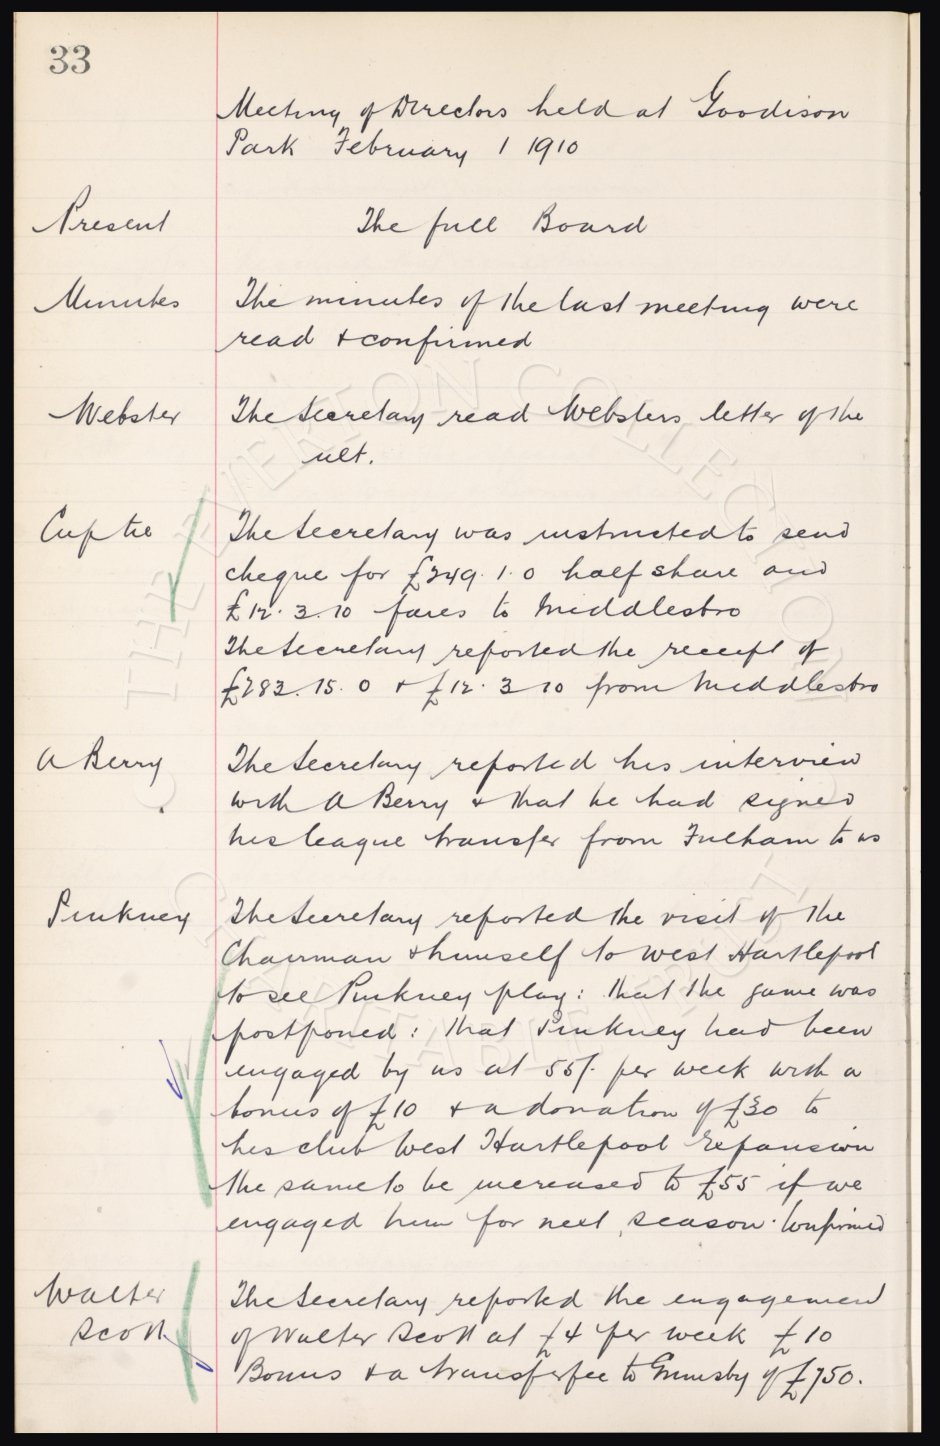 33
Meeting of Directors held at Goodison
Park February 1 1910
Present The full Board
Minutes The minutes of the last meeting were
read & confirmed
Webster The Secretary read Websters letter of the
ult.
Cup tie The Secretary was instructed to send
cheque for £249.1.0 half share and
£12.3.10 fares to Middlesbro
The Secretary reported the receipt of
£283.15.0 & £12.3 10 from Middlesbro
A Berry The Secretary reported his interview
with A Berry & that he had signed
his league transfer from Fulham to us
Pinkney The Secretary reported the visit of the
Chairman & himself to West Hartlepool
to see Pinkney play: that the game was
postponed: that Pinkney had been
engaged by us at 55/- per week with a
bonus of £10 & a donation of £30 to
his club West Hartlepool Expansion
the same to be increased to £55 if we
engaged him for next season. Confirmed
Walter The Secretary reported the engagement
Scott of Walter Scott at £4 per week £10
Bonus & a transfer fee to Grimsby of £750.
THE EVERTON COLLECTION